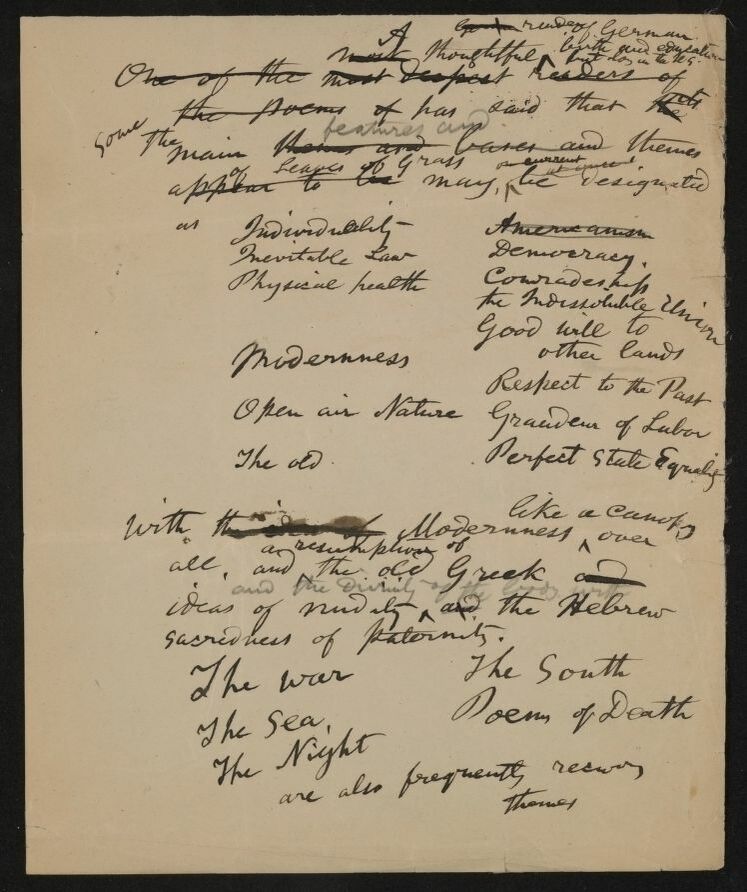 A reader of German
birth and education
One of the most thoughtful but long in the U.S.
most deepest readers of
the poems of has said that the its
Some features and
the main themes and bases and themes
of Leaves of Grass or current
appear to be may, be designated
as
Individuality Americanism
Inevitable Law Democracy.
Physical health Comradeship
the Indissoluble Union
Good will to
Modernness other lands
Respect to the Past
Open air Nature Grandeur of Labor
The old Perfect State Equality
like a canopy
With the idea of Modernness, over
a resumption of
all, and the old Greek and
and the divinity of the body with
ideas of nudity, and the Hebrew
sacredness of paternity.
The war The South
The Sea, Poems of Death
The Night
are also frequently recurring
themes